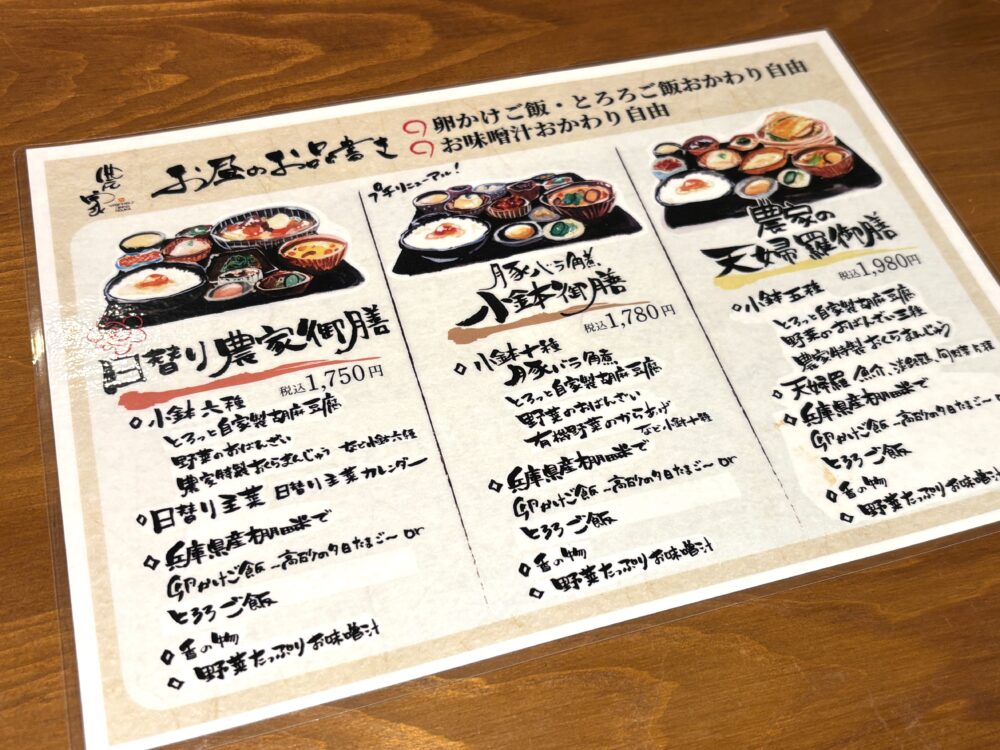 お昼のお品書き
卵かけご飯・とろろご飯おかわり自由
お味噌汁おかわり自由
日替り農家御膳
税込1,750円
◇小鉢六種
とろっと自家製胡麻豆腐
野菜のおばんざい
農家特製おくらまんじゅう など小鉢六種
◇日替り主菜 日替り主菜カレンダー
◇兵庫県産棚田米で
卵かけご飯~高砂の夕日たまご~or
とろろご飯
◇香の物
◇野菜たっぷりお味噌汁
プチリニューアル!
豚バラ角煮
小鉢御膳
税込1,780円
◇小鉢十種
豚バラ角煮
とろっと自家製胡麻豆腐
野菜のおばんざい
有機野菜のからあげ
など小鉢十種
◇兵庫県産棚田米で
卵かけご飯~高砂の夕日たまご~or
とろろご飯
◇香の物
◇野菜たっぷりお味噌汁
農家の
天婦羅御膳
税込1,980円
◇小鉢五種
とろっと自家製胡麻豆腐
野菜のおばんざい三種
農家特製おくらまんじゅう
◇天婦羅 魚介、淡路鶏、旬野菜
◇兵庫県産棚田米で
卵かけご飯~高砂の夕日たまご~o
とろろご飯
◇香の物
◇野菜たっぷりお味噌汁